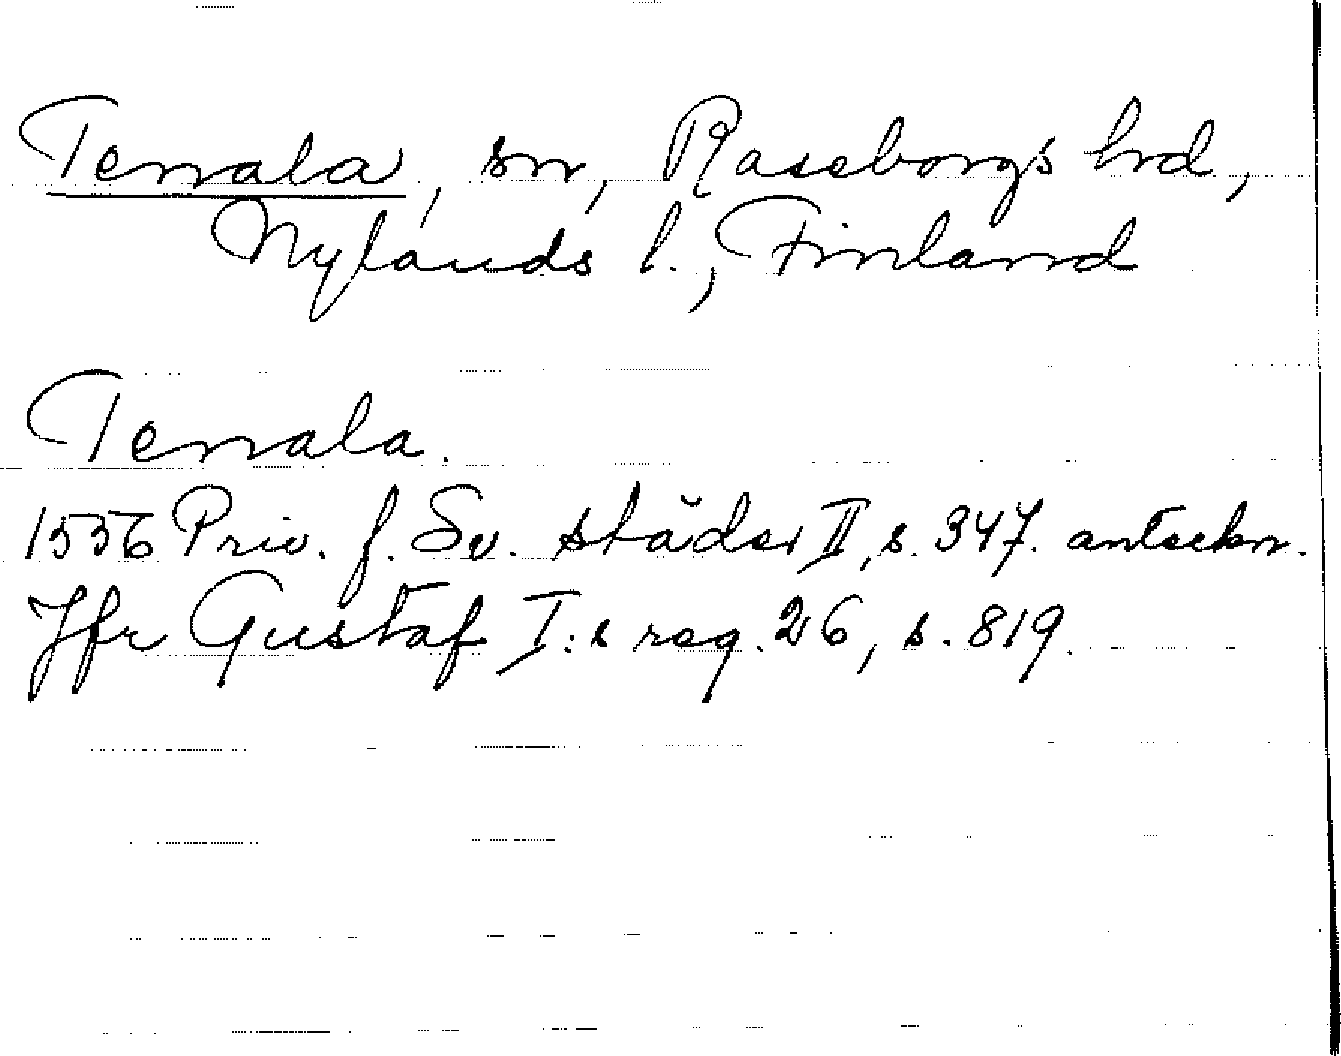 Tenala, sn, Raseborgs hrd,
Nylands l., Finland
Tenala.
1556 Priv. f. Sv. städer II, s. 347. anteckn.
Jfr Gustaf I:s reg. 26, s. 819.